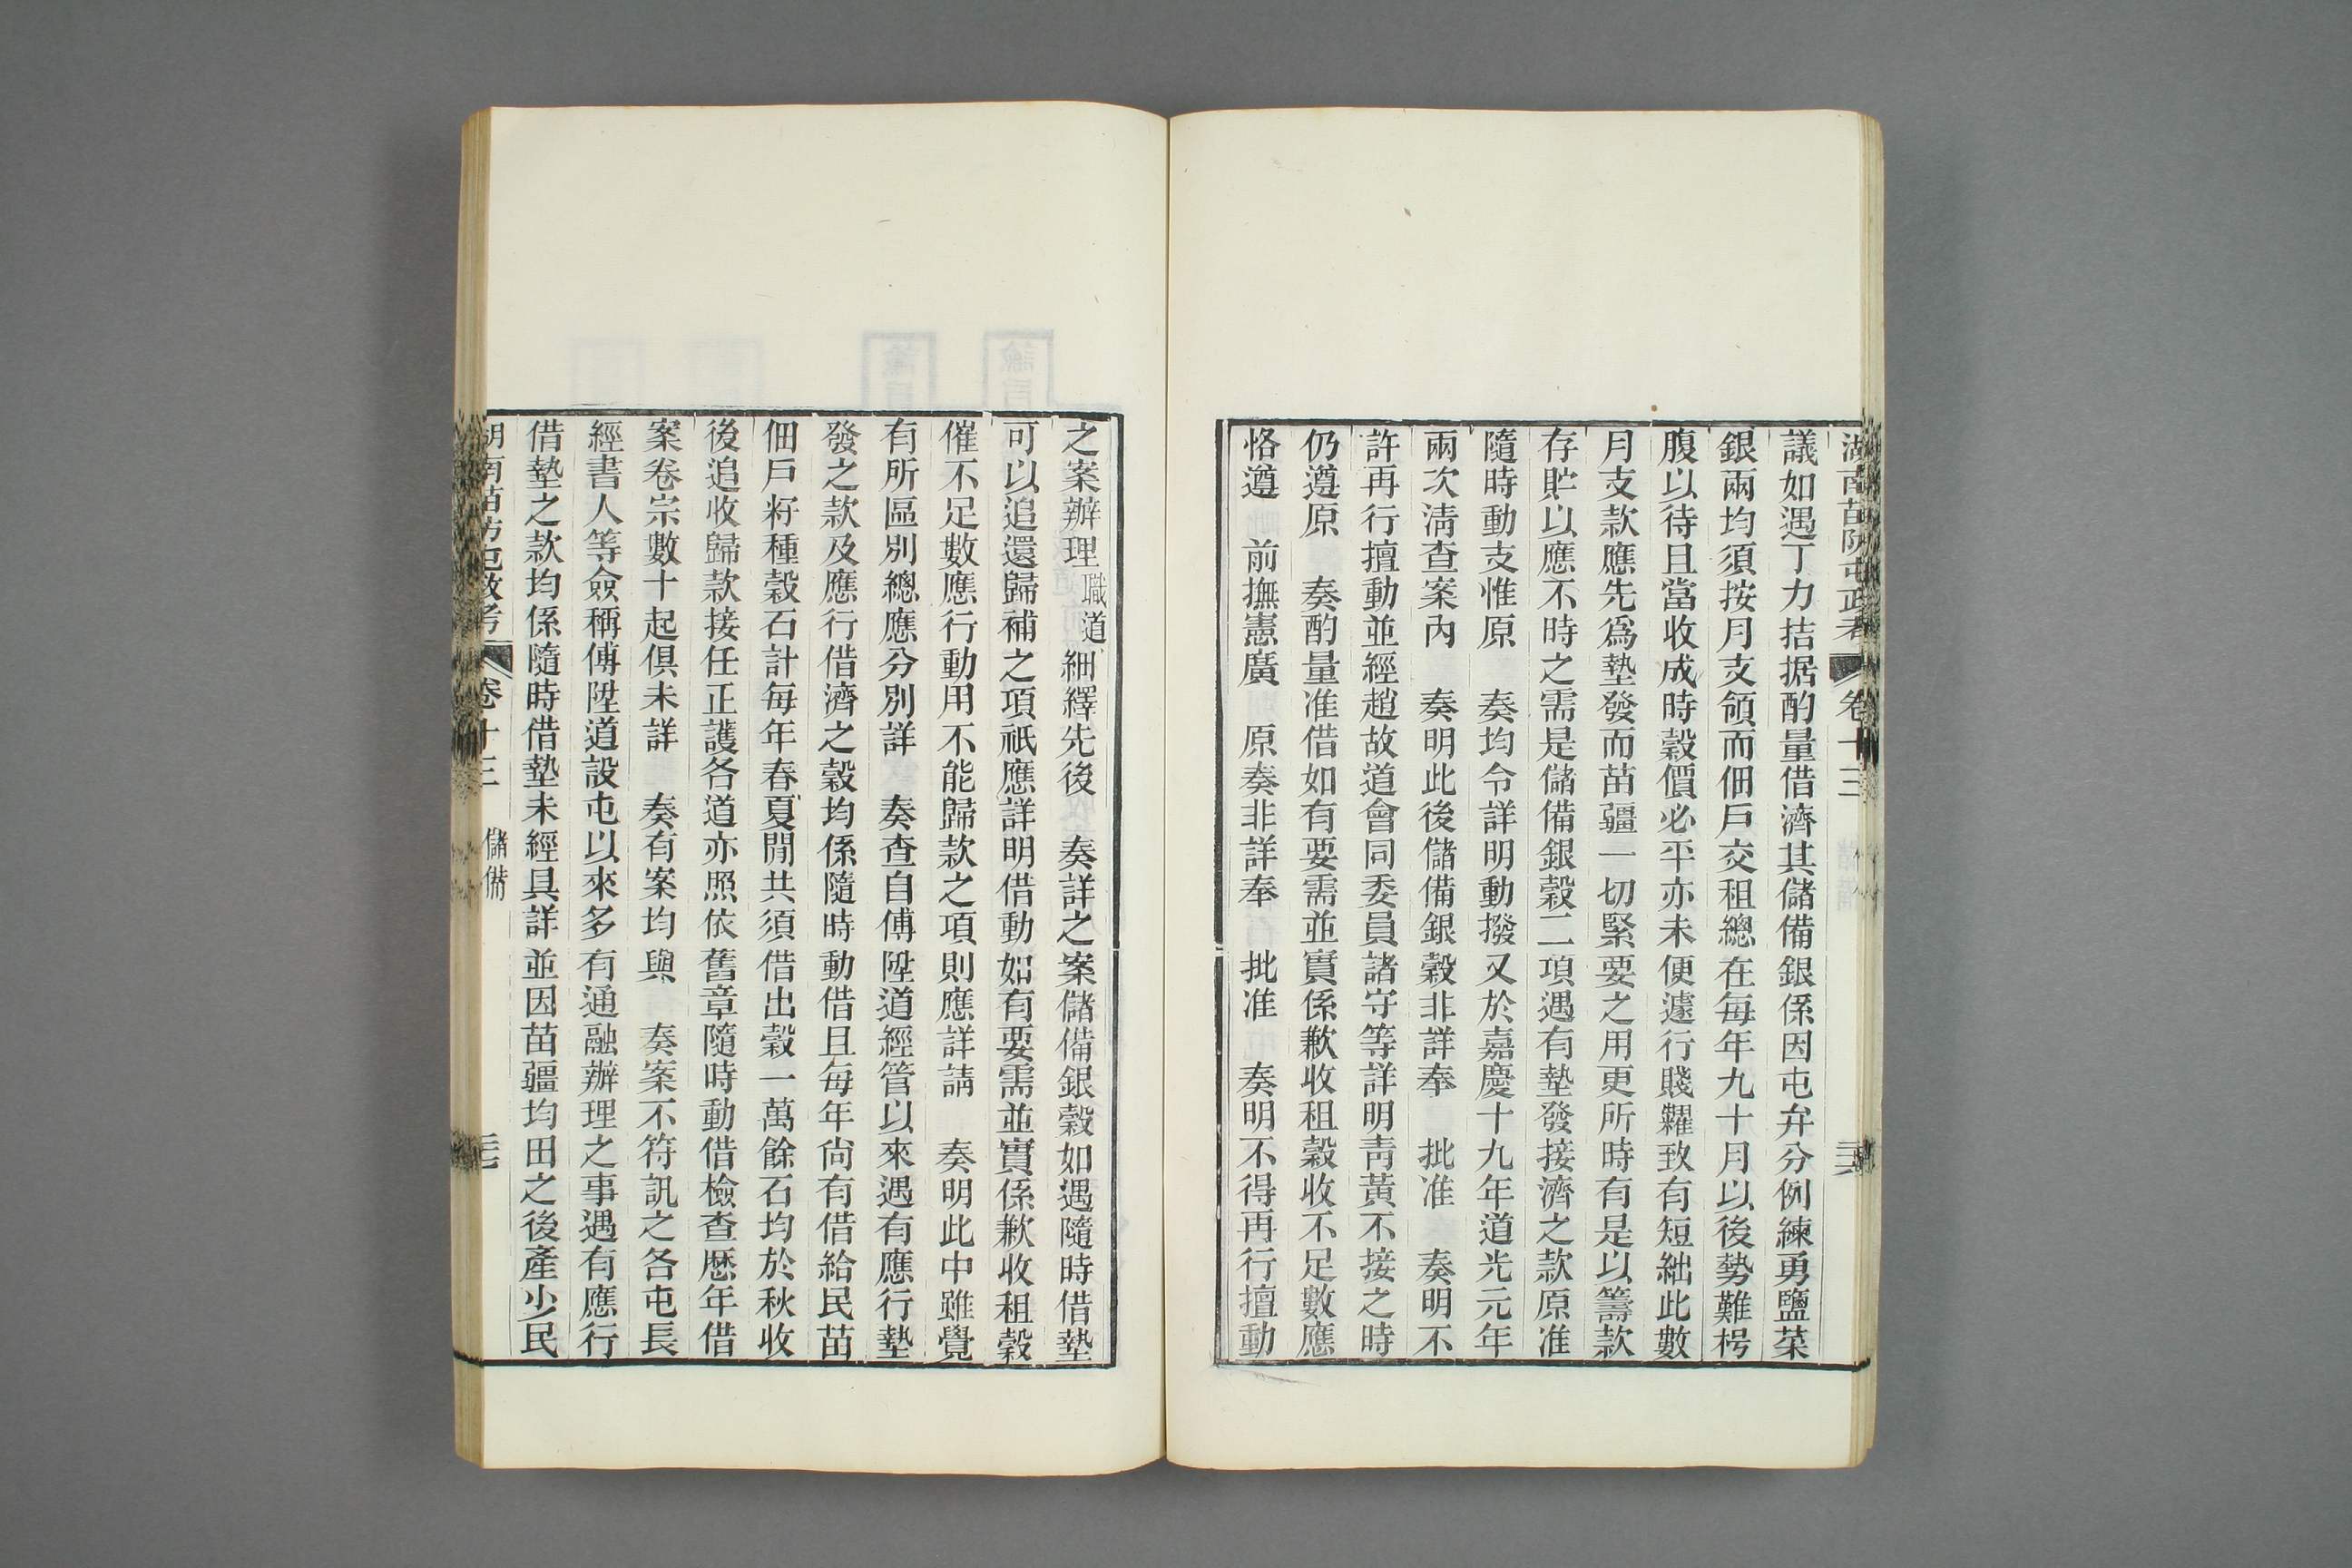 湖南苗防屯政考 卷十三
議如遇丁力拮据酌量借濟其儲備銀係因屯弁分例練勇鹽菜
銀兩均須按月支領而佃戶交租總在每年九十月以後勢難枵
腹以待且當收成時穀價必平亦未便遽行賤糶致有短絀此數
月支款應先爲墊發而苗疆一切緊要之用更所時有是以籌款
存貯以應不時之需是儲備銀穀二項遇有墊發接濟之款原准
隨時動支惟原　奏均令詳明動撥又於嘉慶十九年道光元年
兩次淸查案內　奏明此後儲備銀穀非詳奉　批准　奏明不
許再行擅動並經趙故道會同委員諸守等詳明靑黃不接之時
仍遵原　奏酌量准借如有要需並實係歉收租穀收不足數應
恪遵　前撫憲廣　原奏非詳奉　批准　奏明不得再行擅動
之案辦理職道細繹先後　奏詳之案儲備銀穀如遇隨時借墊
可以追還歸補之項祇應詳明借動如有要需並實係歉收租穀
催不足數應行動用不能歸款之項則應詳請　奏明此中雖覺
有所區別總應分別詳　奏查自傅陞道經管以來遇有應行墊
發之款及應行借濟之穀均係隨時動借且每年尙有借給民苗
佃戶籽種穀石計每年春夏閒共須借出穀一萬餘石均於秋收
後追收歸款接任正護各道亦照依舊章隨時動借檢查歷年借
案卷宗數十起俱未詳　奏有案均與　奏案不符訊之各屯長
經書人等僉稱傅陞道設屯以來多有通融辦理之事遇有應行
借墊之款均係隨時借墊未經具詳並因苗疆均田之後產少民
湖南苗防屯政考 卷十三 儲備